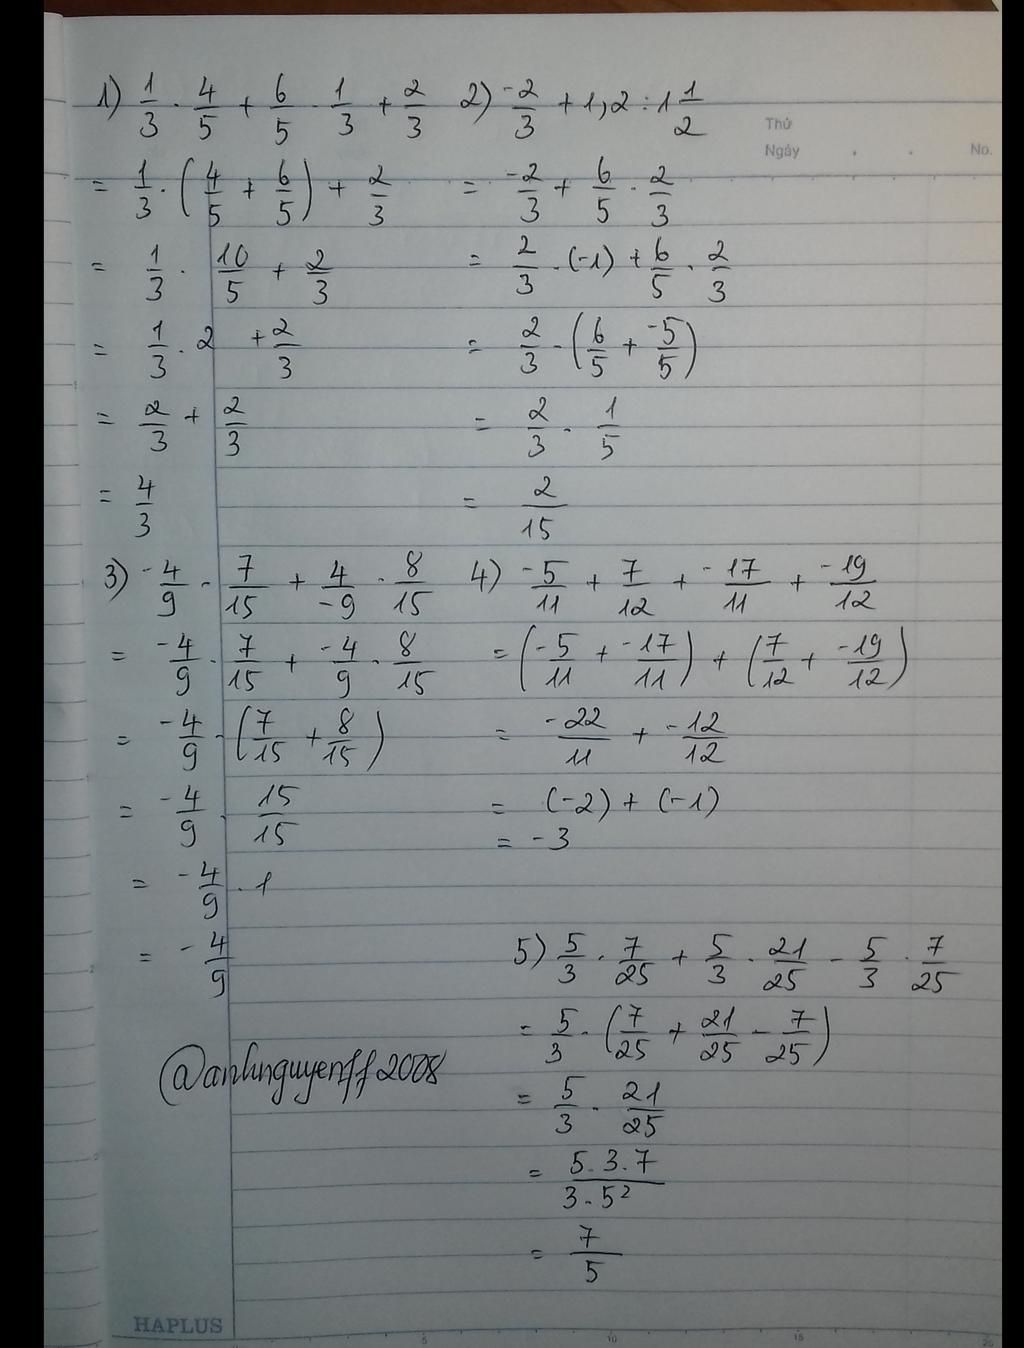 1) 1/3 . 4/5 + 6/5 . 1/3 + 2/3
= 1/3 . (4/5 + 6/5) + 2/3
= 1/3 . 10/5 + 2/3
= 1/3 . 2 + 2/3
= 2/3 + 2/3
= 4/3
2) -2/3 + 1,2 : 1 1/2
= -2/3 + 6/5 . 2/3
= 2/3 . (-1) + 6/5 . 2/3
= 2/3 . (6/5 + -5/5)
= 2/3 . 1/5
= 2/15
Thứ
Ngày . . No.
3) -4/9 . 7/15 + 4/-9 . 8/15
= -4/9 . 7/15 + -4/9 . 8/15
= -4/9 . (7/15 + 8/15)
= -4/9 . 15/15
= -4/9 . 1
= -4/9
4) -5/11 + 7/12 + -17/11 + -19/12
= (-5/11 + -17/11) + (7/12 + -19/12)
= -22/11 + -12/12
= (-2) + (-1)
= -3
5) 5/3 . 7/25 + 5/3 . 21/25 - 5/3 . 7/25
= 5/3 . (7/25 + 21/25 - 7/25)
= 5/3 . 21/25
= 5.3.7/3.5²
= 7/5
@anhnguyenff2008
HAPLUS
5 10 15